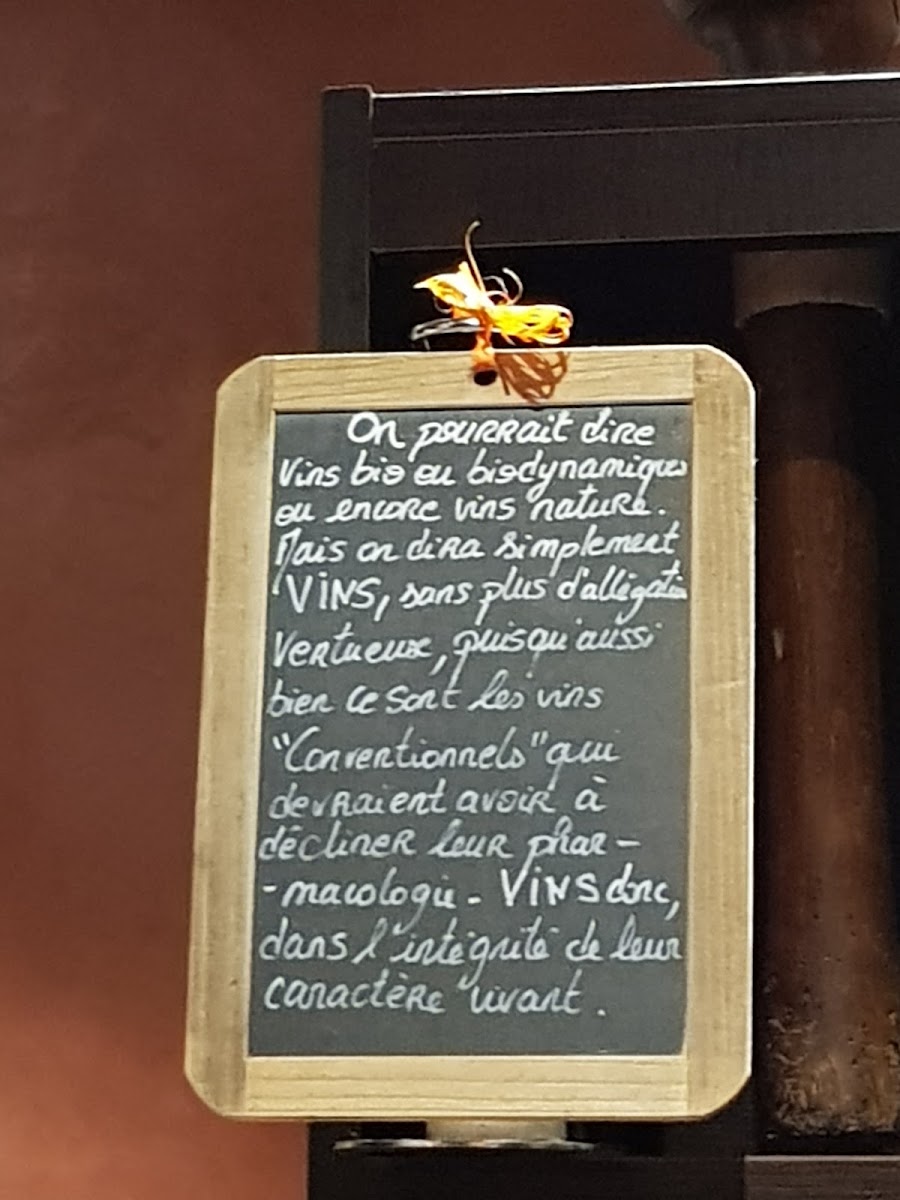 On pourrait dire
Vins bio ou biodynamiques
ou encore vins nature.
Mais on dira simplement
VINS, sans plus d'allégation
vertueuse, puisqu'aussi
bien ce sont les vins
"Conventionnels" qui
devraient avoir à
décliner leur phar-
-macologie - VINS donc,
dans l'intégrité de leur
caractère vivant.